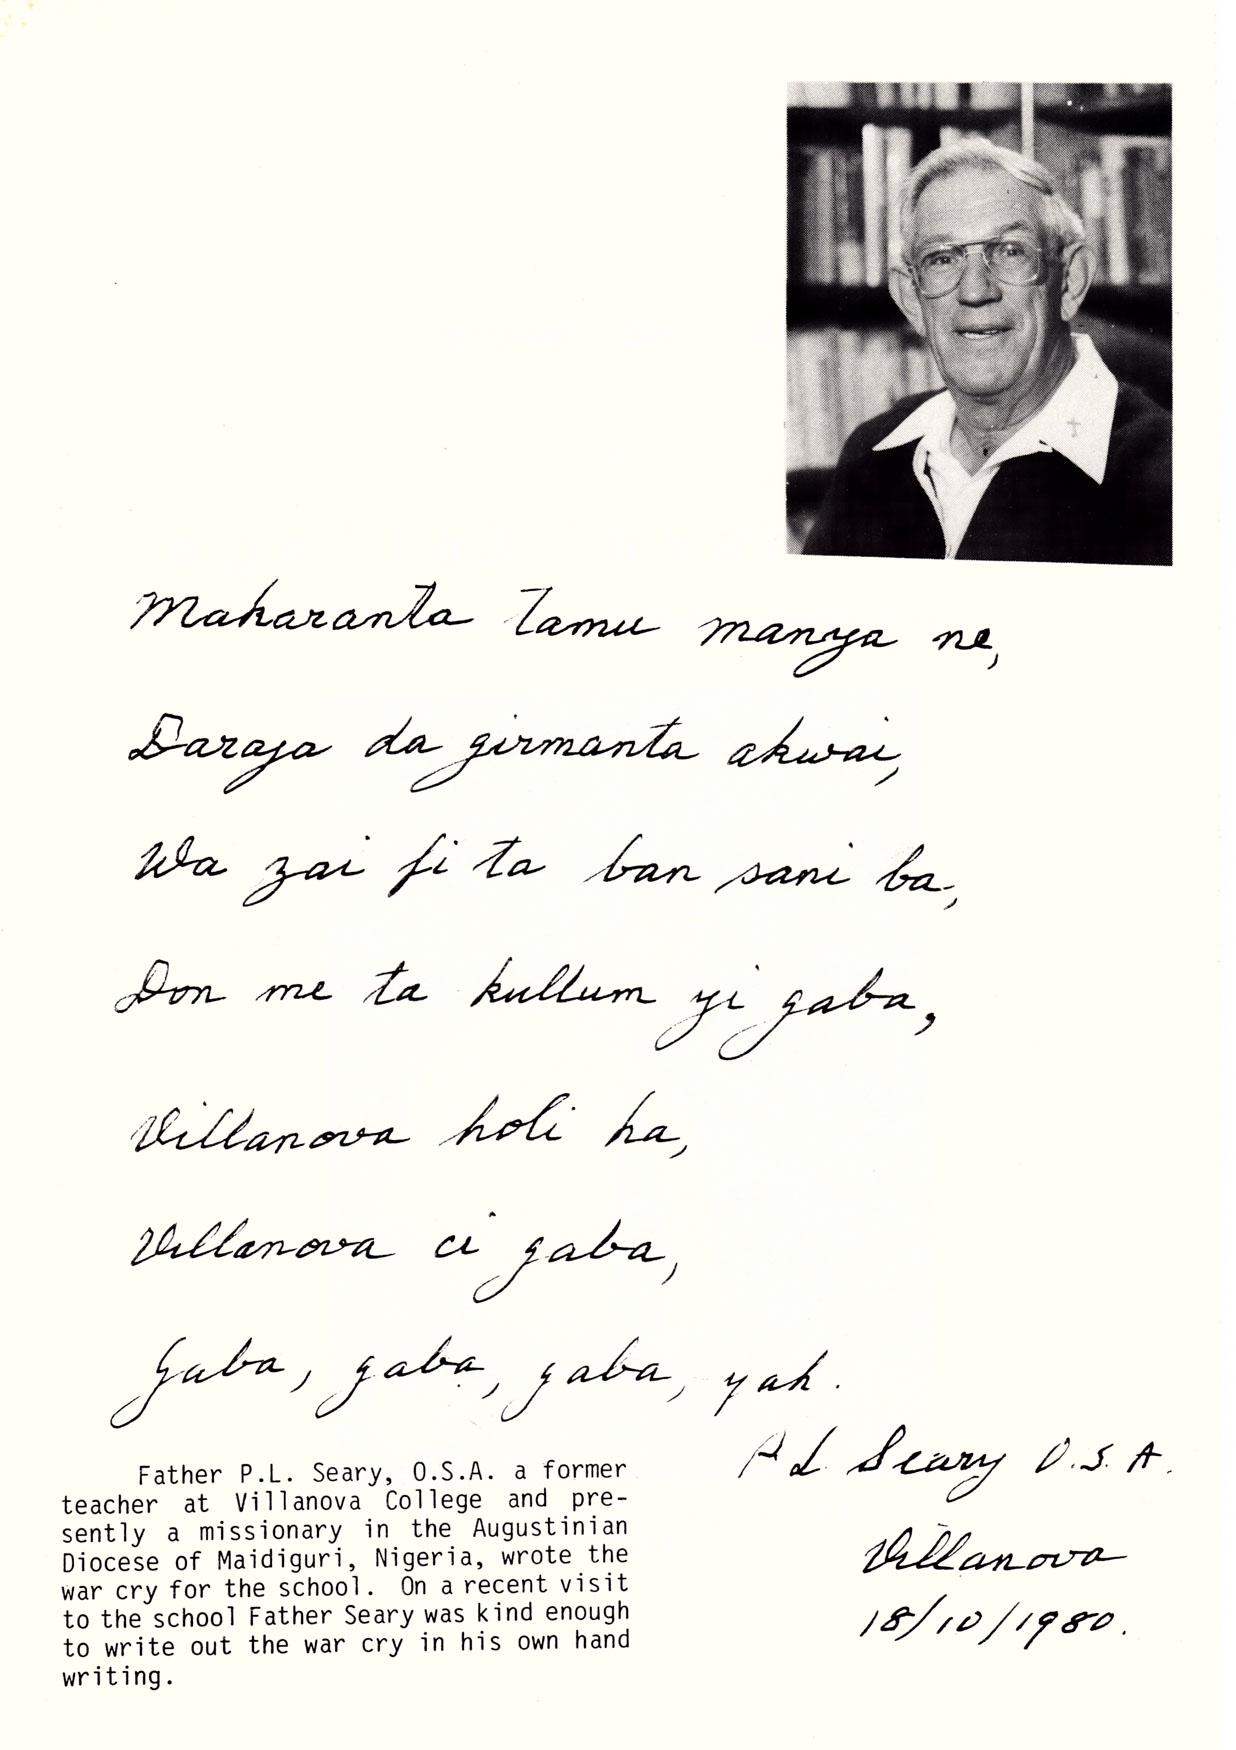 Makaranta tamu manya ne,
Daraja da girmanta akwai,
Wa zai fi ta ban sani ba,
Don me ta kullum yi gaba,
Villanova holi ha,
Villanova ci gaba,
Gaba, gaba, gaba, yah.
P L Seary O.S.A.
Villanova
18/10/1980.
Father P.L. Seary, O.S.A. a former
teacher at Villanova College and pre-
sently a missionary in the Augustinian
Diocese of Maidiguri, Nigeria, wrote the
war cry for the school. On a recent visit
to the school Father Seary was kind enough
to write out the war cry in his own hand
writing.